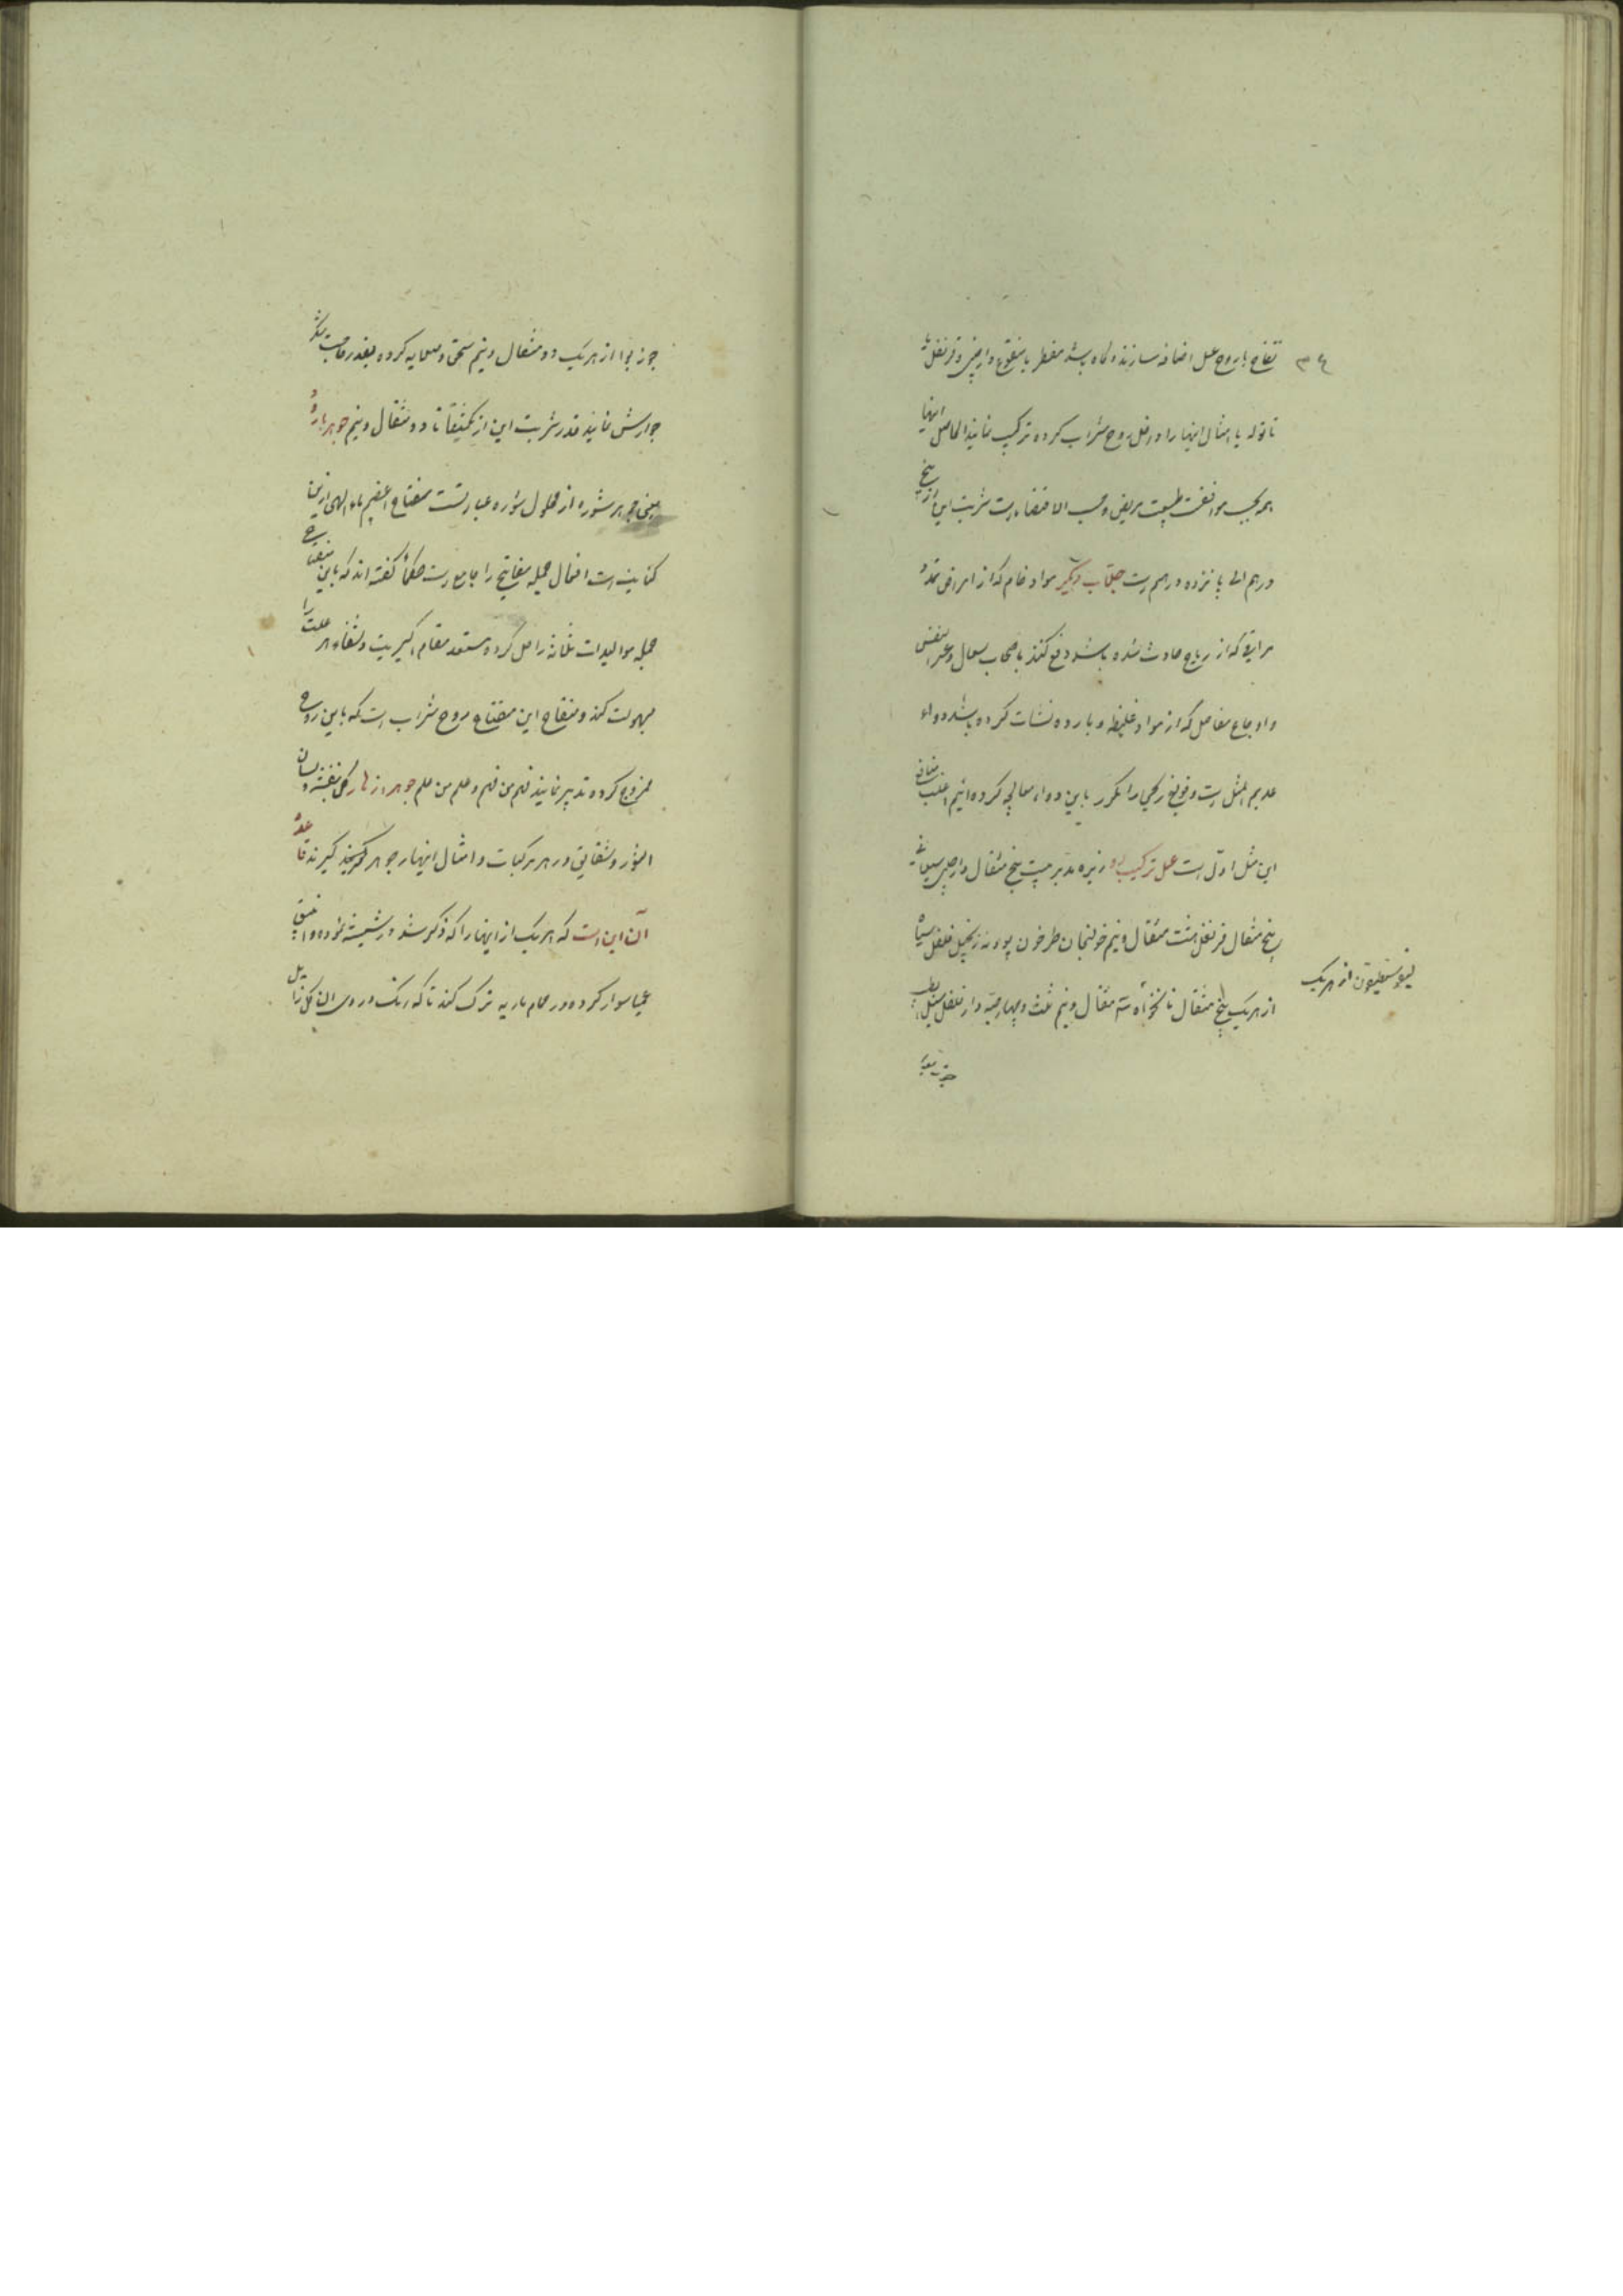 ٣٤
تفاح با روح عسل اضافه سازند و گاه باشد مقطر یا منقوع دارچینی و قرنفل یا
تا توله یا امثال اینها را در خل روح شراب کرده ترکیب نمایند الحاصل اینها
همه بحسب موافقت طبیعت مریض و حسب الاقتضاء است شربت این از پنج
درهم الی پانزده درهم است جلاب دیگر مواد خام که از امراض
مراریّه که از ریاح حادث شده باشد دفع کند با صحاب سعال و عسر النفس
و اوجاع مفاصل که از مواد غلیظه و بارده نشأت کرده باشد دواء
عدیم المثل است و قولنج ریحی را مکرر باین دواء معالجه کرده‌ایم اغلب
این مثل اوّل است عمل ترکیب او زیره مدبر بیست پنج مثقال دارچینی سیلانی
پنج مثقال قرنفل هشت مثقال و نیم خولنجان طرخون پودنه زنجبیل فلفل سیاه
لیغوسطیقون از هر یک
از هر یک پنج مثقال نانخواه سه مثقال و نیم ثلث و چهار حبّه دار فلفل سنبل الطیب
جوز بوا
جوز بوا از هر یک دو مثقال و نیم سحق و صلایه کرده بقدر حاجت شکر
جوارش نمایند قدر شربت این از یکمثقال تا دو مثقال و نیم جوهر بارود
یعنی جوهر شوره از محلول شوره عبارتست مفتاح اعظم ماء الهی ازین
کنایه است افعال جمله مفاتیح را جامع است حکما گفته‌اند که باین مفتاح
جمله موالیدات ثلاثه را حل کرده مستعد مقام اکسیریت و شفاء هر علت را
سهولت کند و مفتاح این مفتاح روح شراب است که باین روح
ممزوج کرده تدبیر نمایند فهم من فهم و علم من علم جوهر ازهار گل بنفشه و لسان
الثور و شقایق و در هر مرکبات و امثال اینها جوهر گیرند قاعدهٔ
آن این است که هر یک از اینها را که ذکر شد در شیشه نموده و انبیق
عمیا سوار کرده در حمام ماریه ترک کند تا که رنگ و روی ان گل زایل